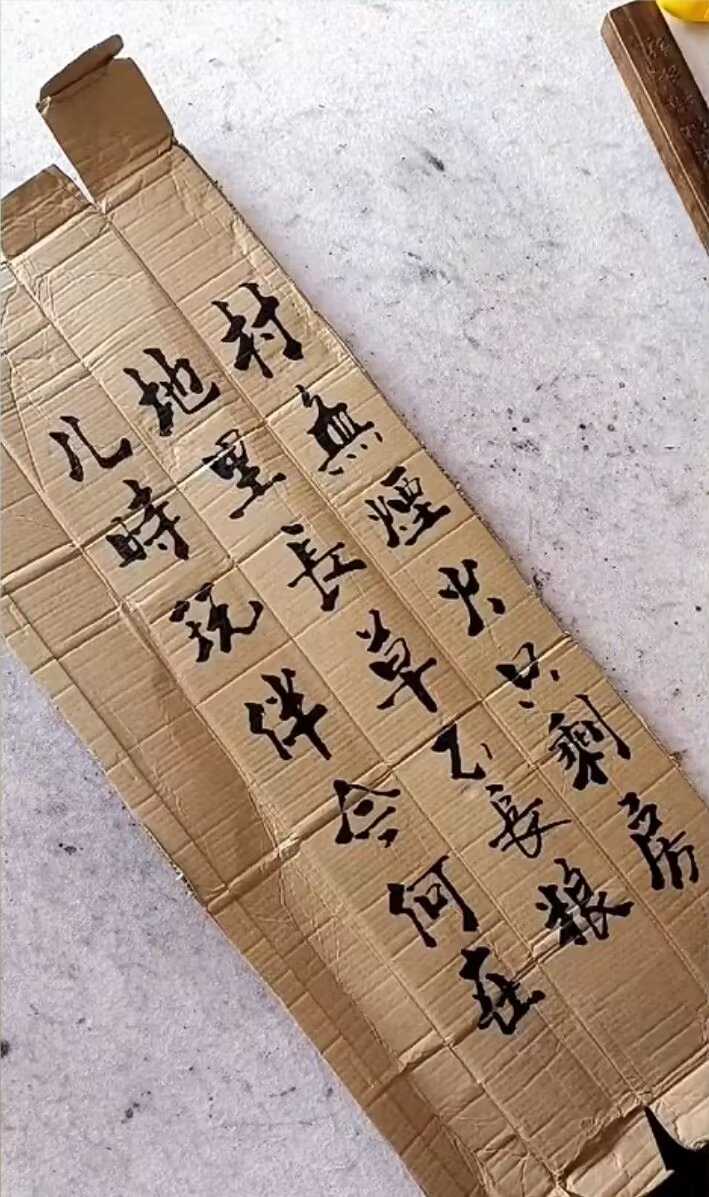 村無煙火只剩房
地里長草不長粮
儿時玩伴今何在